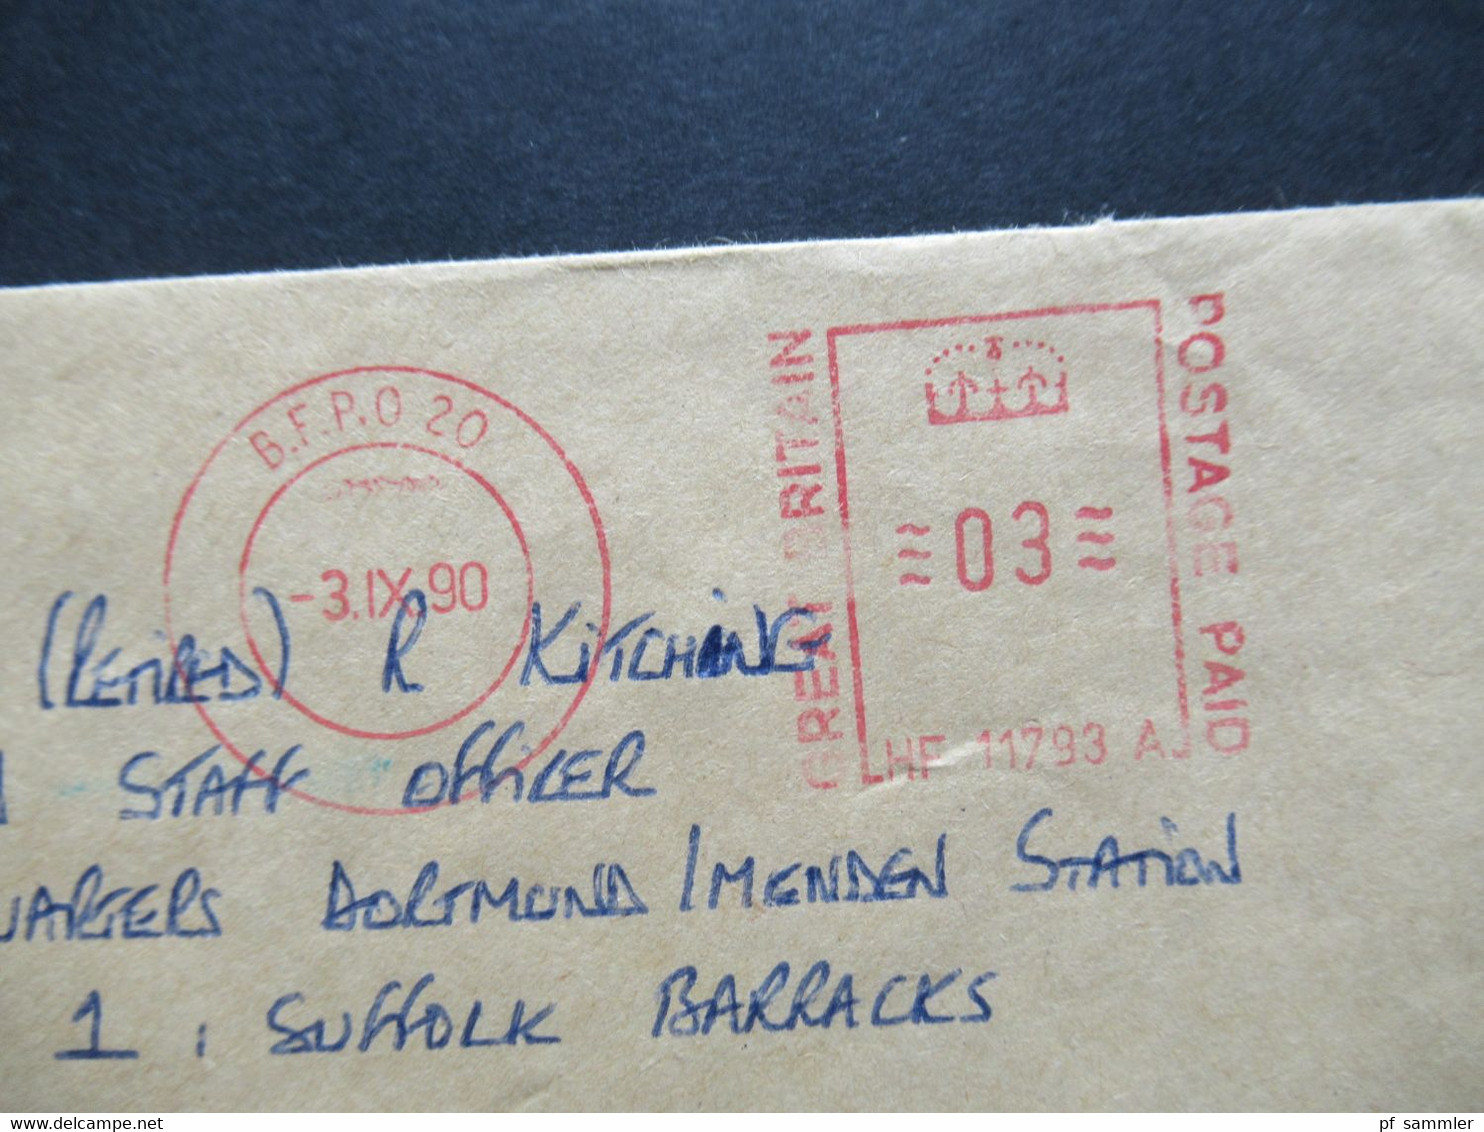 B.F.P.O 20
-3.IX.90
GREAT BRITAIN
03
POSTAGE PAID
HF 11793 A
(RETIRED) R KITCHING
STAFF OFFICER
UARTERS DORTMUND / MENDEN STATION
1 , SUFFOLK BARRACKS
www.delcampe.net
pf_sammler